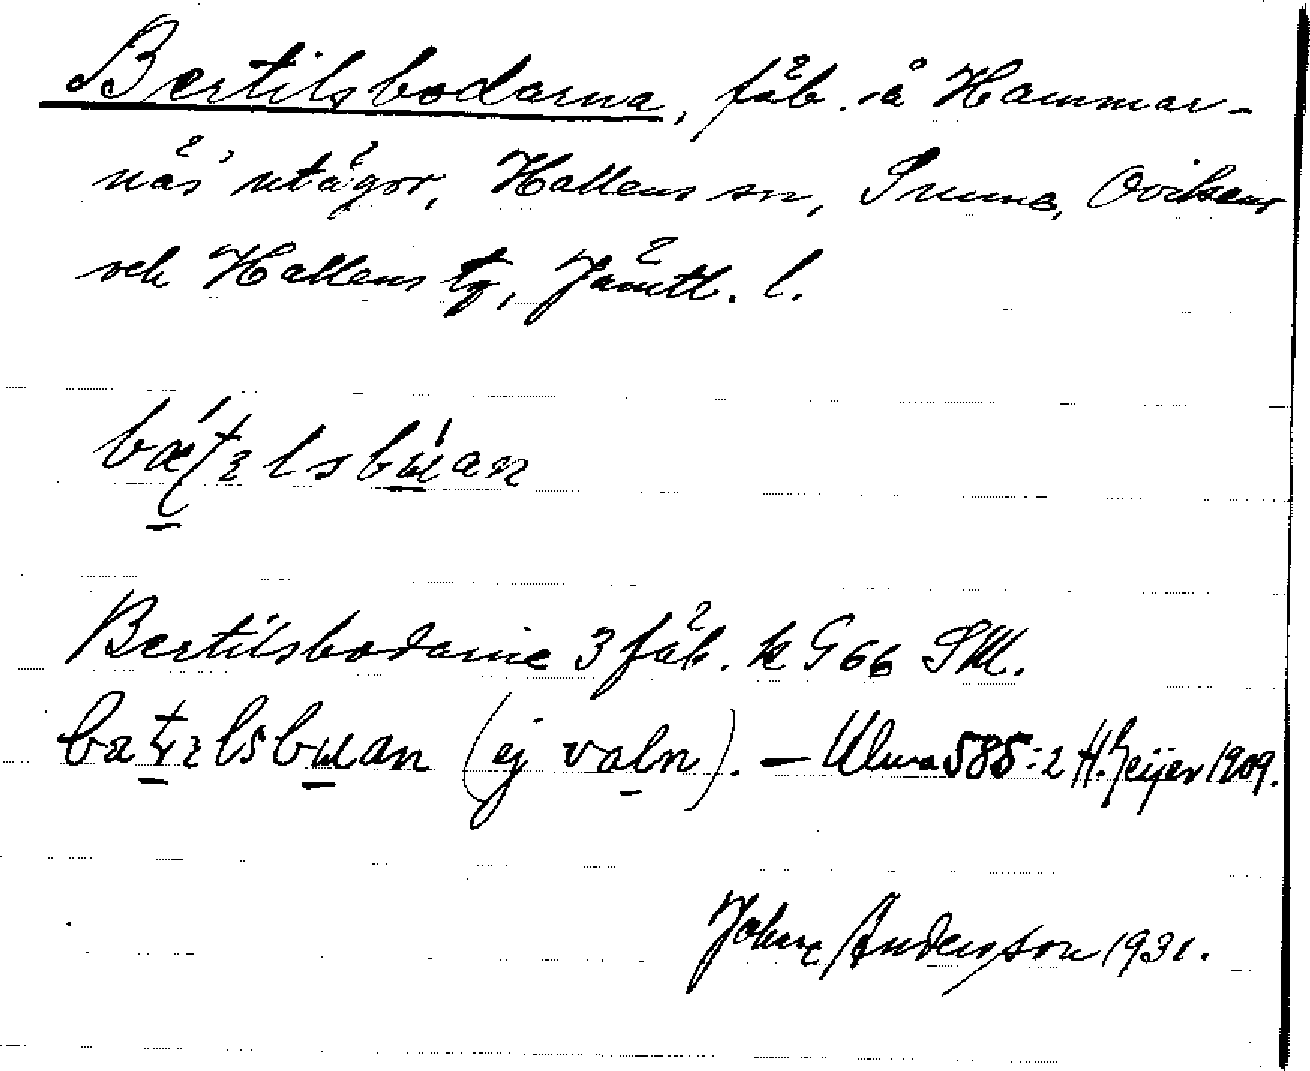 Bertilsbodarna, fäb. å Hammar-
näs' utägor, Hallens sn, Sunne, Ovikens
och Hallens tg, Jämtl. l.
Bertilsbodarne 3 fäb. k G 66 SM.
(ej valn). – Ulma 585:2 H. Geijer 1909.
John Andersson 1931.